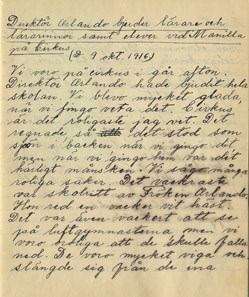 Direktör Arlando bjuder lärare och
lärarinnor samt elever vid Manilla
på Cirkus
(D. 9 okt. 1916)
Vi voro på cirkus i går afton.
Direktör Arlando hade bjudit hela
skolan. Vi blevo mycket glada
när vi fingo veta det. Cirkus
är det roligaste jag vet. Det
regnade så det stod som
sjön i backen när vi gingo dit
men när vi gingo hem var det
härligt månsken. Vi sågo många
roliga saker. Det vackraste
var skolritt av Fröken Arlando.
Hon red en vacker vit häst.
Det var även vackert att se
på luftgymnasterna men vi
voro oroliga att de skulle falla
ned. De voro mycket viga och
slängde sig från de ena